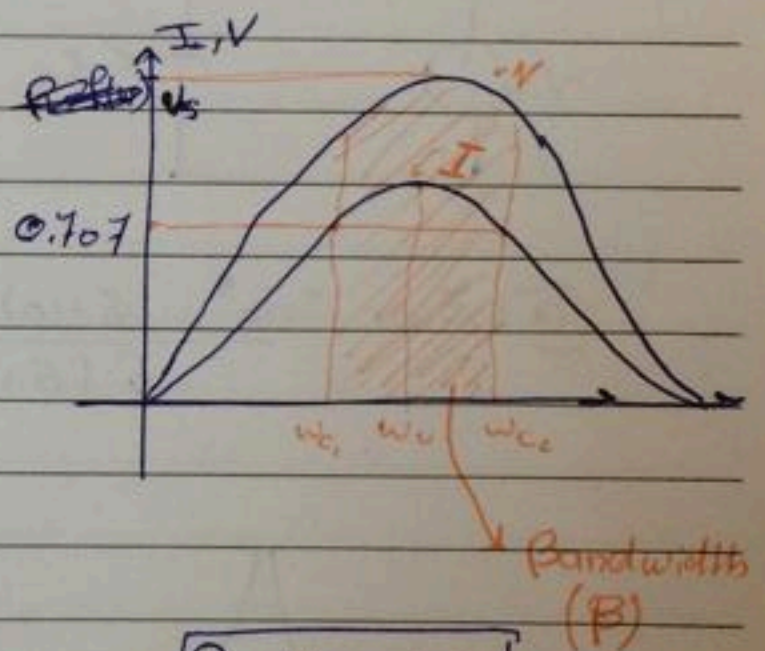 I, V
Vs
V
I
0.707
wc₁ wo wc₂
Bandwidth
(β)